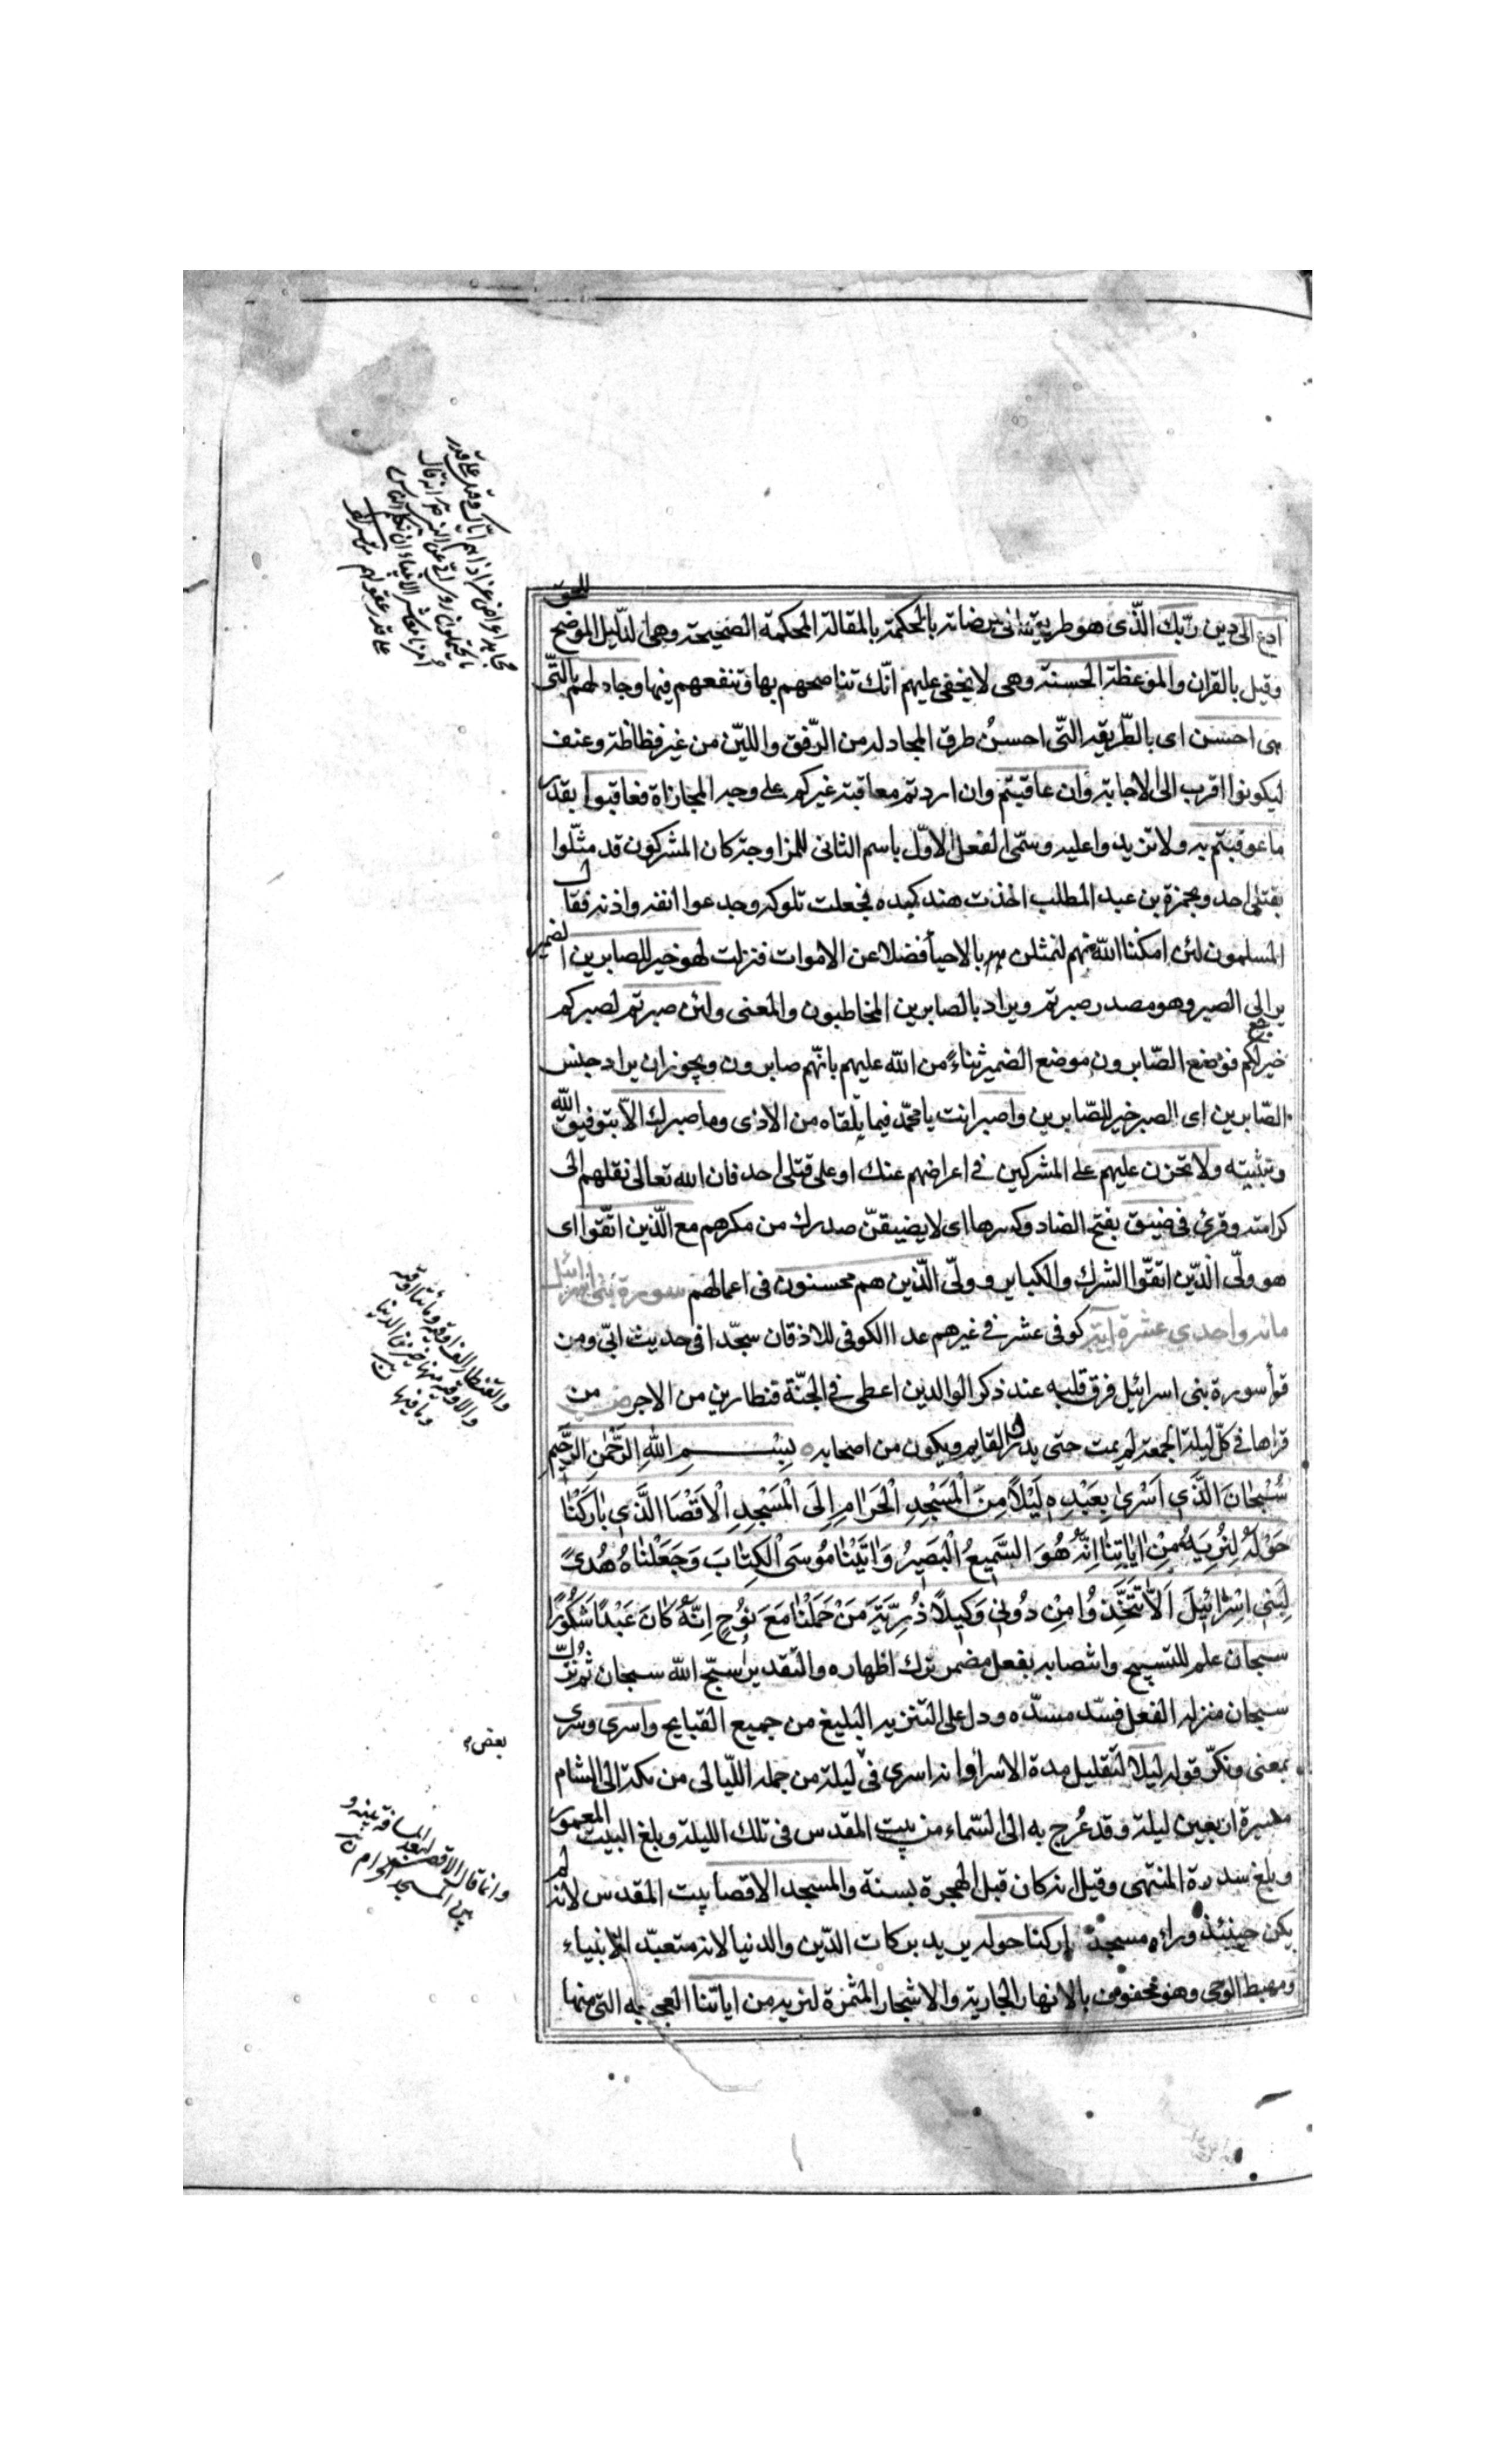 ادع الى دين ربّك الذّى هو طريق الى مرضاته بالحكمة بالمقالة المحكمة الصّحيحة وهى الدّليل الموضح للحق
وقيل بالقران والموعظة الحسنة وهى لا يخفى عليهم انّك تناصحهم بها وتنفعهم فيها وجادلهم بالتّى
هى احسن اى بالطّريقه التّى احسنُ طرق المجادله من الرّفق والليّن من غير فظاظة وعنف
ليكونوا اقرب الى الاجابة وان عاقبتم وان اردتم معاقبة غيركم على وجه المجازاة فعاقبوا بقدر
ما عوقبتم به ولا تزيدوا عليه وسمّى الفعل الاوّل باسم الثانى للمزاوجة كان المشركون قد مثّلوا
بقتلى احد وبحمزة بن عبد المطلب اخذت هند كبده فجعلت تلوكه وجدعوا انفه واذنه فقال
المسلمون لئن امكننا الله منهم لنمثلن بالاحيأ فضلا عن الاموات فنزلت لهو خير للصابرين الضمير
يرالى الصبر وهو مصدر صبرتم ويراد بالصابرين المخاطبون والمعنى ولئن صبرتم لصبركم
خير لكم فوضع الصّابرون موضع الضمير ثناءً من الله عليهم بانّهم صابرون ويجوز ان يراد جنس
الصّابرين اى الصبر خير للصّابرين واصبر انت يا محمّد فيما يلقاه من الاذى وما صبرك الاّ بتوفيق الله
وتثبيته ولا تحزن عليهم على المشركين فى اعراضهم عنك او على قتلى احد فان الله تعالى نقلهم الى
كرامته وقرئ فى ضيق بفتح الضاد وكسرها اى لا يضيقنّ صدرك من مكرهم مع الّذين اتّقوا اى
هو ولىّ الّذين اتقوّا الشرك والكباير و ولىّ الّذين هم محسنون فى اعمالهم سورة بنى اسرائيل
مائه واحدى عشرة اية كوفى عشر فى غيرهم عد الكوفى للاذقان سجّدا فى حديث ابىّ ومن
قرأ سورة بنى اسرائيل فرق قلبه عند ذكر الوالدين اعطى فى الجنّة قنطارين من الاجر من
قراها فى كلّ ليلة الجمعة لم يمت حتى يدرك القايم ويكون من اصحابه بِسْمِ اللهِ الرَّحْمٰنِ الرَّحيمِ
سُبْحٰانَ الَّذَي اَسْرىٰ بِعَبْدِهِ لَيْلاً مِنَ الْمَسْجِدِ الْحَرٰامِ اِلَى الْمَسْجِدِ الْاَقْصَا الَّذَي بٰارَكْنٰا
حَوْلَهُ لِنُرِيَهُ مِنْ اٰيٰاتِنٰا اِنَّهُ هُوَ السَّميعُ الْبَصيرُ وَاٰتَيْنٰا مُوسَى الْكِتٰابَ وَجَعَلْنٰاهُ هُدىً
لِبَنى اِسْرٰائيلَ اَلاّٰ تَتَّخِذُوا مِنْ دُونى وَكيلاً ذُرِّيَّةَ مَنْ حَمَلْنٰا مَعَ نُوحٍ اِنَّهُ كٰانَ عَبْداً شَكُوراً
سبحان علم للتسبيح وانتصابه بفعل مضمر ترك اظهاره والتقدير اسبّح الله سبحان ثم نزّل
سبحان منزلة الفعل فسّد مسدّه ودل على التنزيه البليغ من جميع القبايح واسرى وسرى
بمعنى ونكرّ قوله ليلا لتقليل مدة الاسراء وانه اسرى فى ليلة من جملة الليّالى من مكة الى الشام
مسيرة اربعين ليلة وقد عُرج به الى السّماء من بيت المقدس فى تلك الليلة وبلغ البيت المعمور
وبلغ سدرة المنتهى وقيل انه كان قبل الهجرة بسنة والمسجد الاقصا بيت المقدس لانه لم
يكن حينئذ وراءه مسجد باركنا حوله يريد بركات الدّين والدنيا لانه متعبّد الانبياء
ومهبط الوحى وهو محفوف بالانهار الجارية والاشجار المثمرة لنريه من اياتنا العجيبه التى منها
ما يحتملون روى عن النبى انه قال
امرنا معاشر الانبياء ان نكلم الناس
على قدر عقولهم
والقنطار الف اوقية ومائتا اوقية
والاوقية منها خير من الدنيا
وما فيها
بعض
وانما قال الاقصى لبعد المسافة بينه و
بين المسجد الحرام